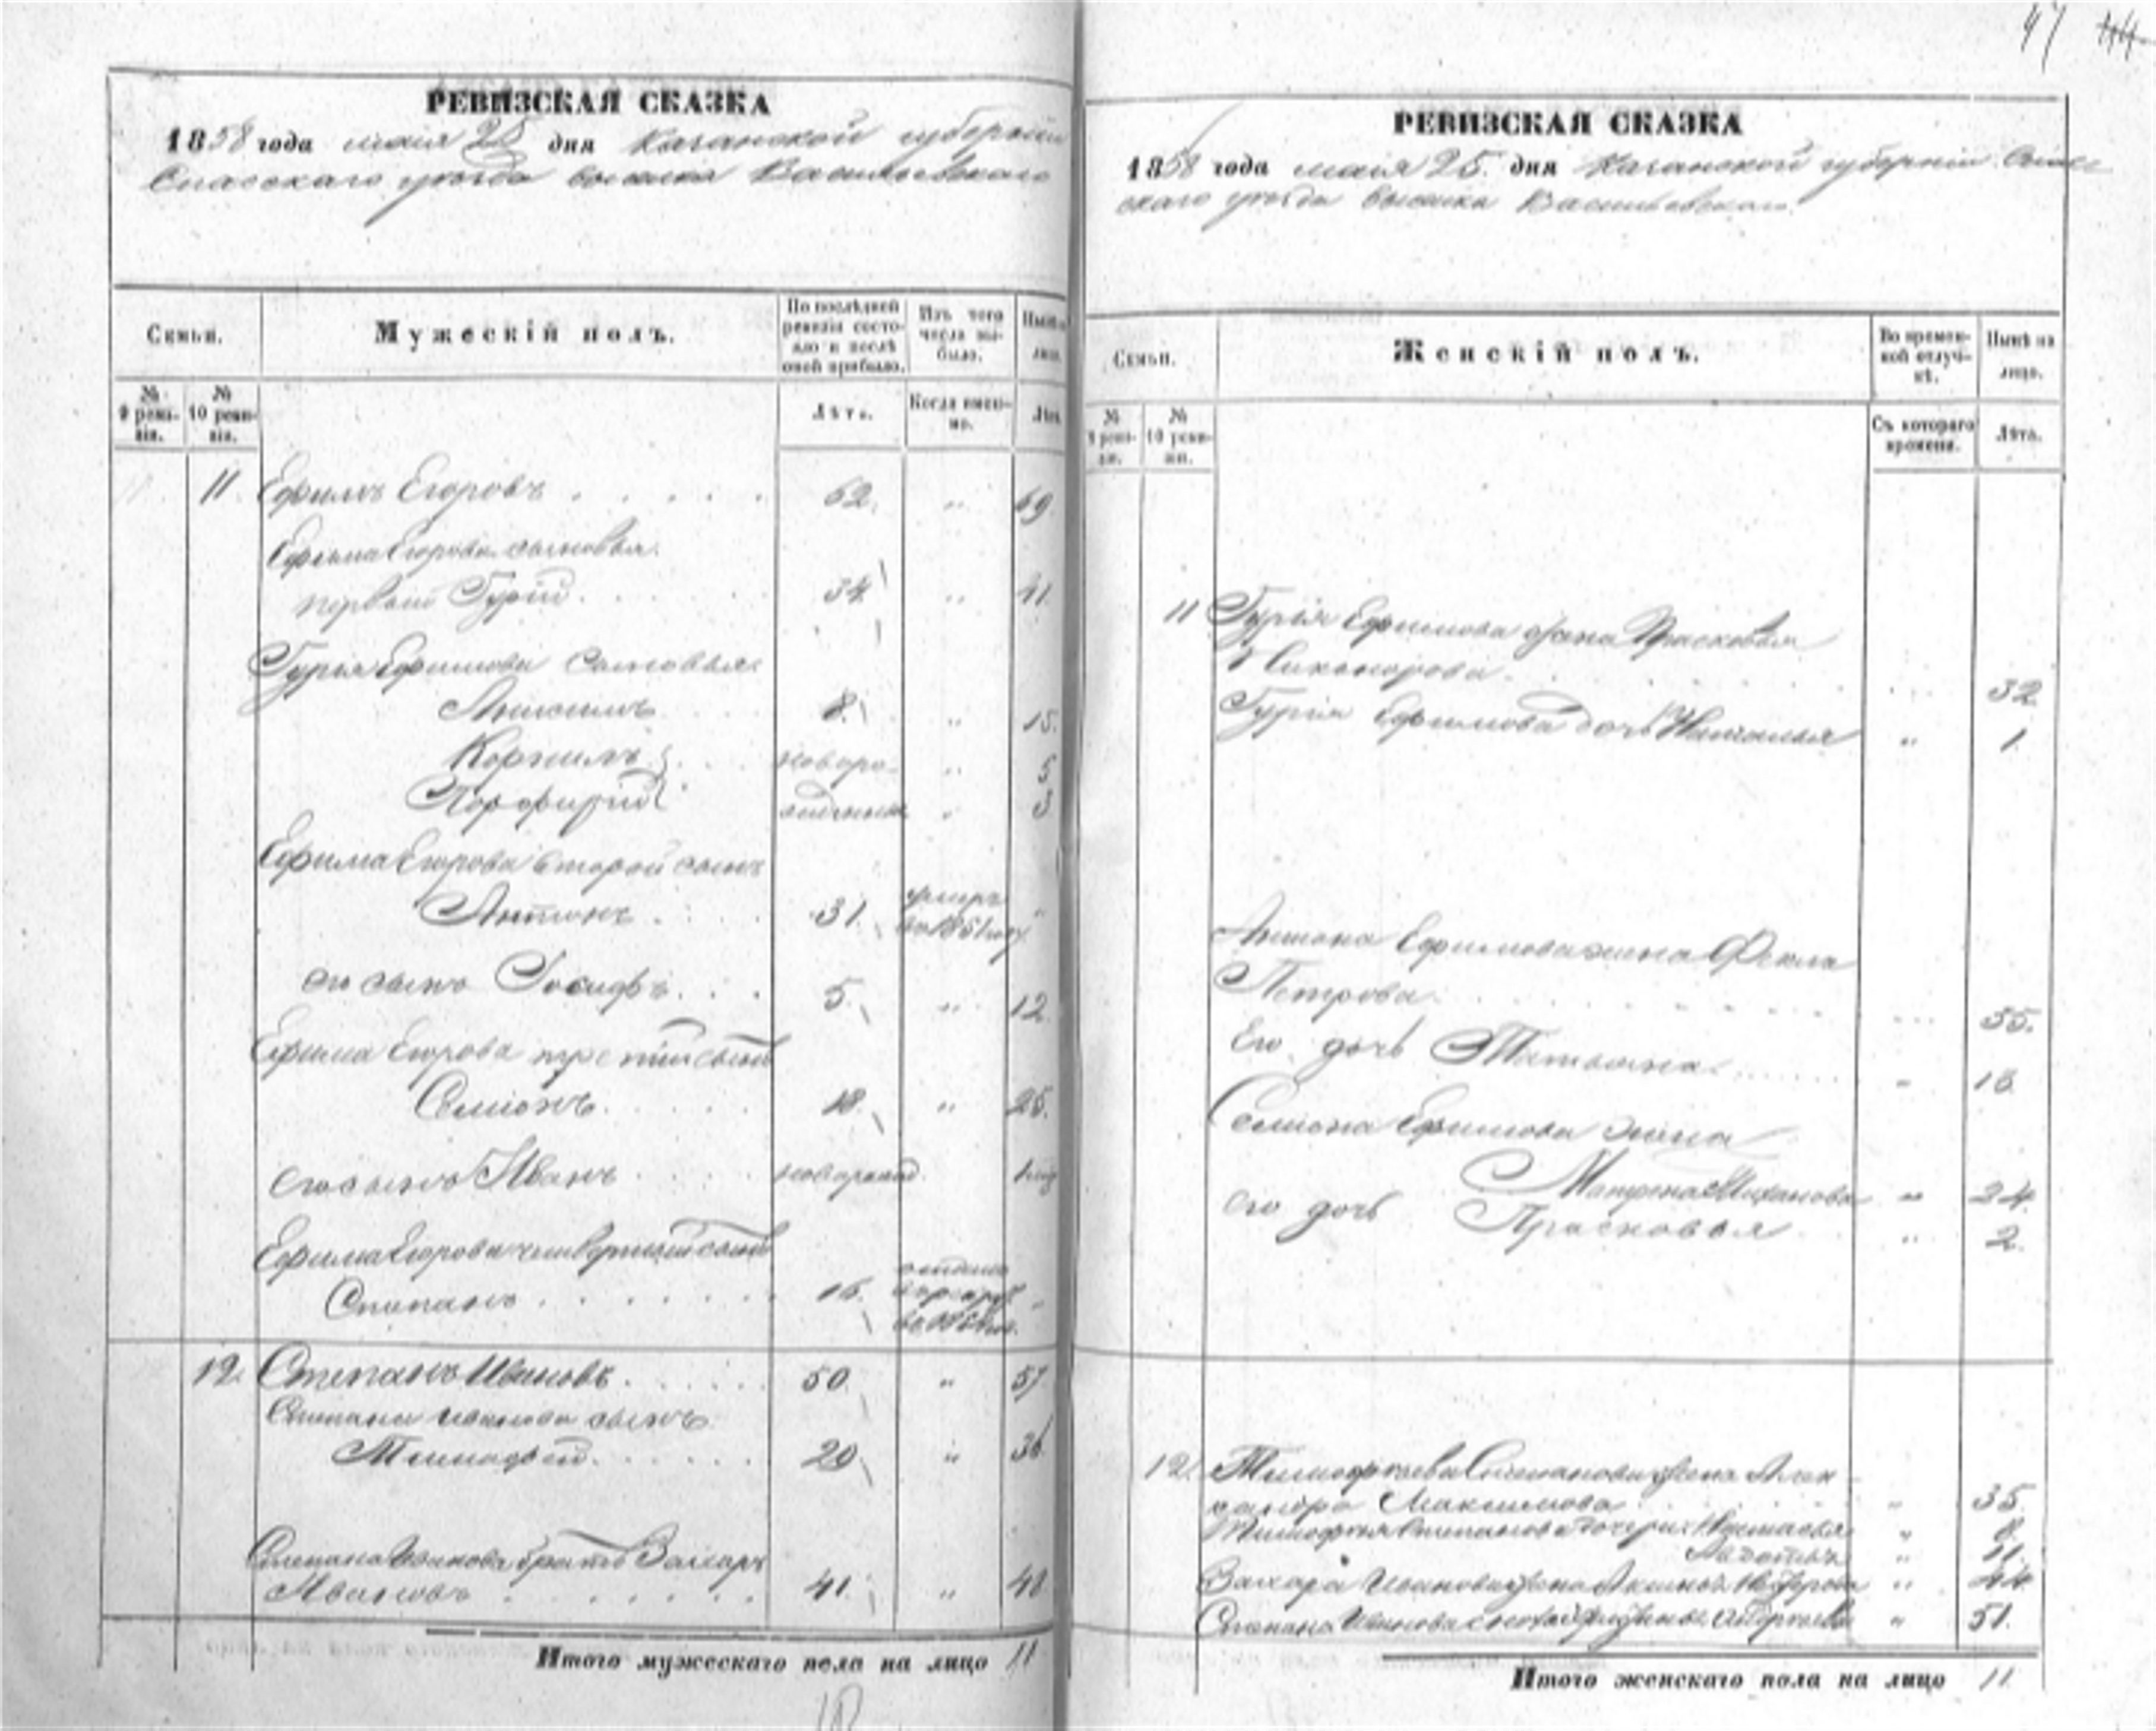 47 44
РЕВИЗСКАЯ СКАЗКА
1858 года маія 25 дня Казанской губерніи
Спасскаго уѣзда выселка Васильевскаго
Семьи.
Мужескій полъ.
По послѣдней ревизіи состояло и послѣ оной прибыло.
Изъ того числа выбыло.
Нынѣ на лицо.
№ 9 ревизіи.
№ 10 ревизіи.
Лѣта.
Когда именно.
Лѣта.
11 11 Ефимъ Егоровъ 62. " 69.
Ефима Егорова сыновья.
первый Гурій. 34 " 41.
Гурія Ефимова сыновья:
Анисимъ 8. " 15.
Корнилъ новоро- " 5
Порфирій жденные " 3
Ефима Егорова второй сынъ
Антонъ. 31. умеръ въ 1851 году "
его сынъ Іосифъ. 5. " 12.
Ефима Егорова третій сынъ
Семіонъ. 18. " 25.
его сынъ Иванъ новорожд.
Ефима Егорова четвертый сынъ
Степанъ 16. "
12. Степанъ Ивановъ. 50. " 57
Степана Иванова сынъ
Тимофей. 29. " 36
Степана Иванова братъ Захаръ
Ивановъ 41. " 48
Итого мужескаго пола на лицо 11
РЕВИЗСКАЯ СКАЗКА
1858 года маія 25. дня Казанской губерніи Спас
скаго уѣзда выселка Васильевскаго.
Семьи.
Женскій полъ.
Во временной отлучкѣ.
Нынѣ на лицо.
№ 9 ревизіи.
№ 10 ревизіи.
Съ котораго времени.
Лѣта.
11 Гурія Ефимова жена Прасковья
Никонорова. 32.
Гурія Ефимова дочь Наталья " 1.
Антона Ефимова жена Фекла
Петрова. 35.
Его дочь Татьяна. " 16
Семіона Ефимова жена
Матрена " 24.
его дочь Прасковья " 2.
12. Тимофеева Степанова жена Алек-
сандра Максимова " 35.
Тимофея Степанова дочери: Настасья "
Авдотья "
Захара Иванова жена " 44
Степана Иванова " 51.
Итого женскаго пола на лицо 11